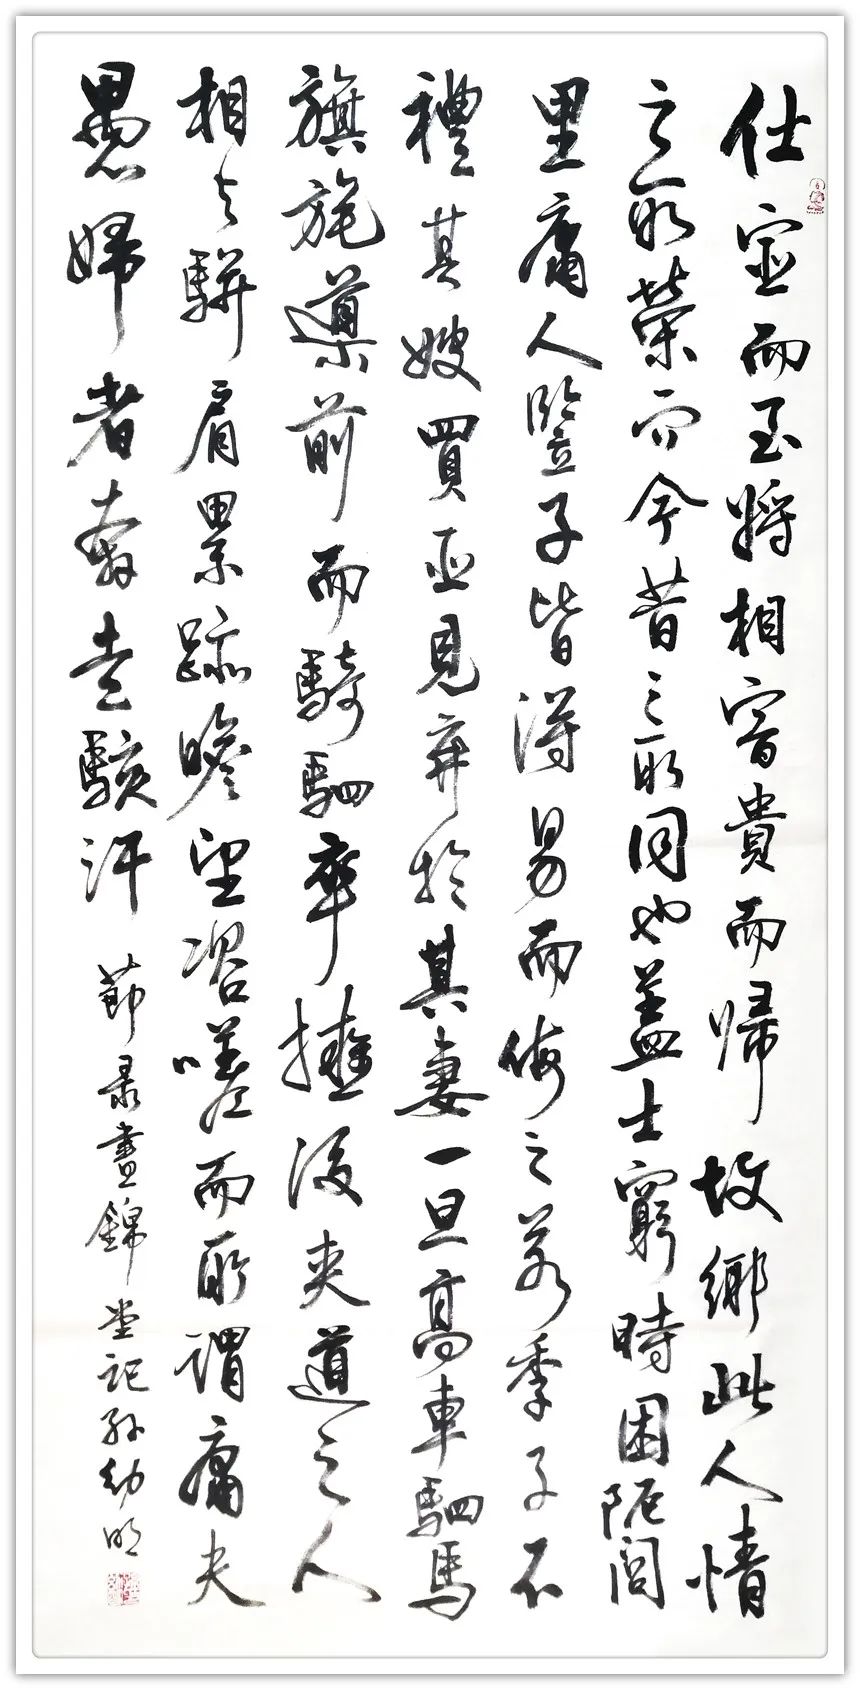 仕宦而至將相富貴而歸故鄉此人情
之所榮而今昔之所同也蓋士窮時困阨閭
里庸人竪子皆得易而侮之若季子不
禮其嫂買臣見棄於其妻一旦高車駟馬
旗旄導前而騎駟卒擁後夾道之人
相与駢肩累跡瞻望咨嗟而所謂庸夫
愚婦者奔走駭汗 節录晝錦堂記孫幼明